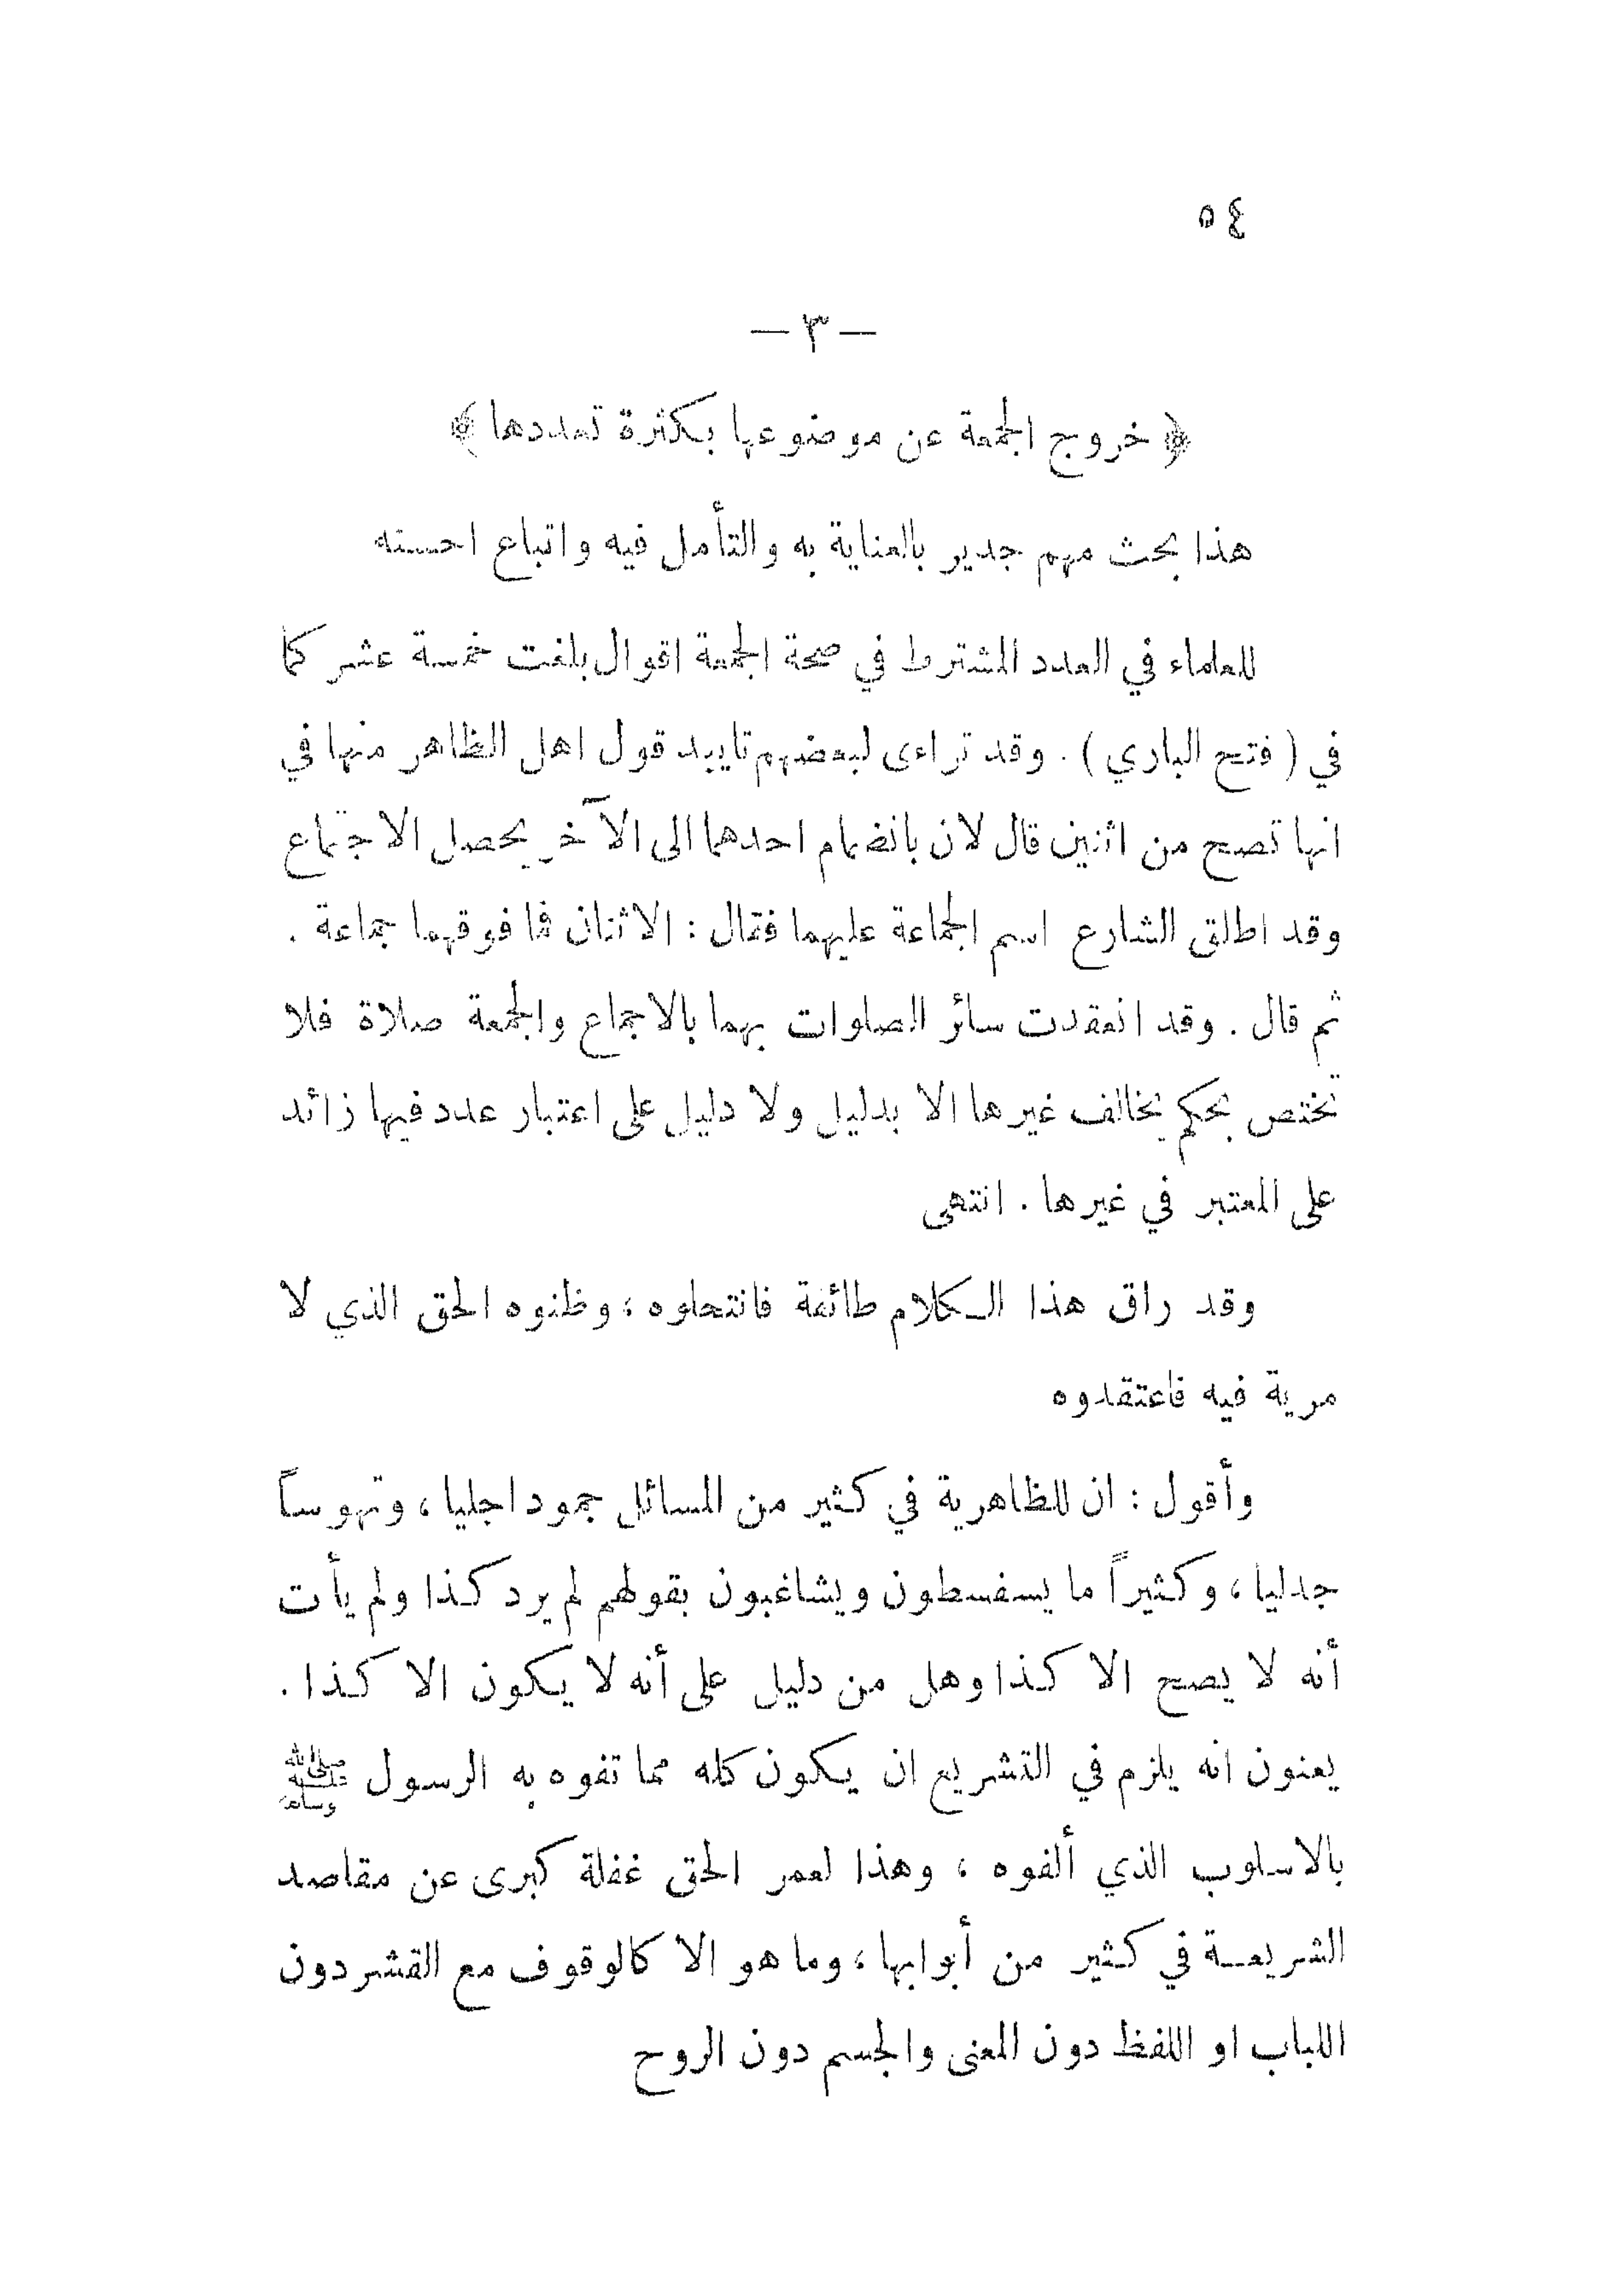 ٥٤
— ٣ —
﴿ خروج الجمعة عن موضوعها بكثرة تعددها ﴾
هذا بحث مهم جدير بالعناية به والتأمل فيه واتباع احسنه
للعلماء في العدد المشترط في صحة الجمعة اقوال بلغت خمسة عشر كما
في ( فتح الباري ) . وقد تراءى لبعضهم تاييد قول اهل الظاهر منها في
انها تصح من اثنين قال لان بانضمام احدهما الى الآخر يحصل الاجتماع
وقد اطلق الشارع اسم الجماعة عليهما فقال : الاثنان فما فوقهما جماعة .
ثم قال . وقد انعقدت سائر الصلوات بهما بالاجماع والجمعة صلاة فلا
تختص بحكم يخالف غيرها الا بدليل ولا دليل على اعتبار عدد فيها زائد
على المعتبر في غيرها . انتهى
وقد راق هذا الكلام طائفة فانتحلوه ؛ وظنوه الحق الذي لا
مرية فيه فاعتقدوه
وأقول : ان للظاهرية في كثير من المسائل جمودا جليا ، وتهوساً
جدليا ، وكثيراً ما يسفسطون ويشاغبون بقولهم لم يرد كذا ولم يأت
أنه لا يصح الا كذا وهل من دليل على أنه لا يكون الا كذا .
يعنون انه يلزم في التشريع ان يكون كله مما تفوه به الرسول ﷺ
بالاسلوب الذي ألفوه ، وهذا لعمر الحق غفلة كبرى عن مقاصد
الشريعة في كثير من أبوابها ، وما هو الا كالوقوف مع القشر دون
اللباب او اللفظ دون المعنى والجسم دون الروح